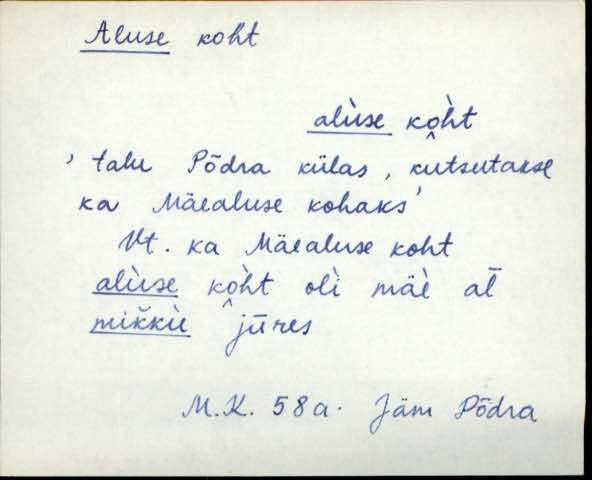 Aluse koht
alùse kò̭ht
'talu Põdra külas, kutsutakse
ka Mäealuse kohaks'
Vt. ka Mäealuse koht
alùse kò̭ht olì mäè al̄
mik̆kù jūres
M.K. 58a. Jäm Põdra